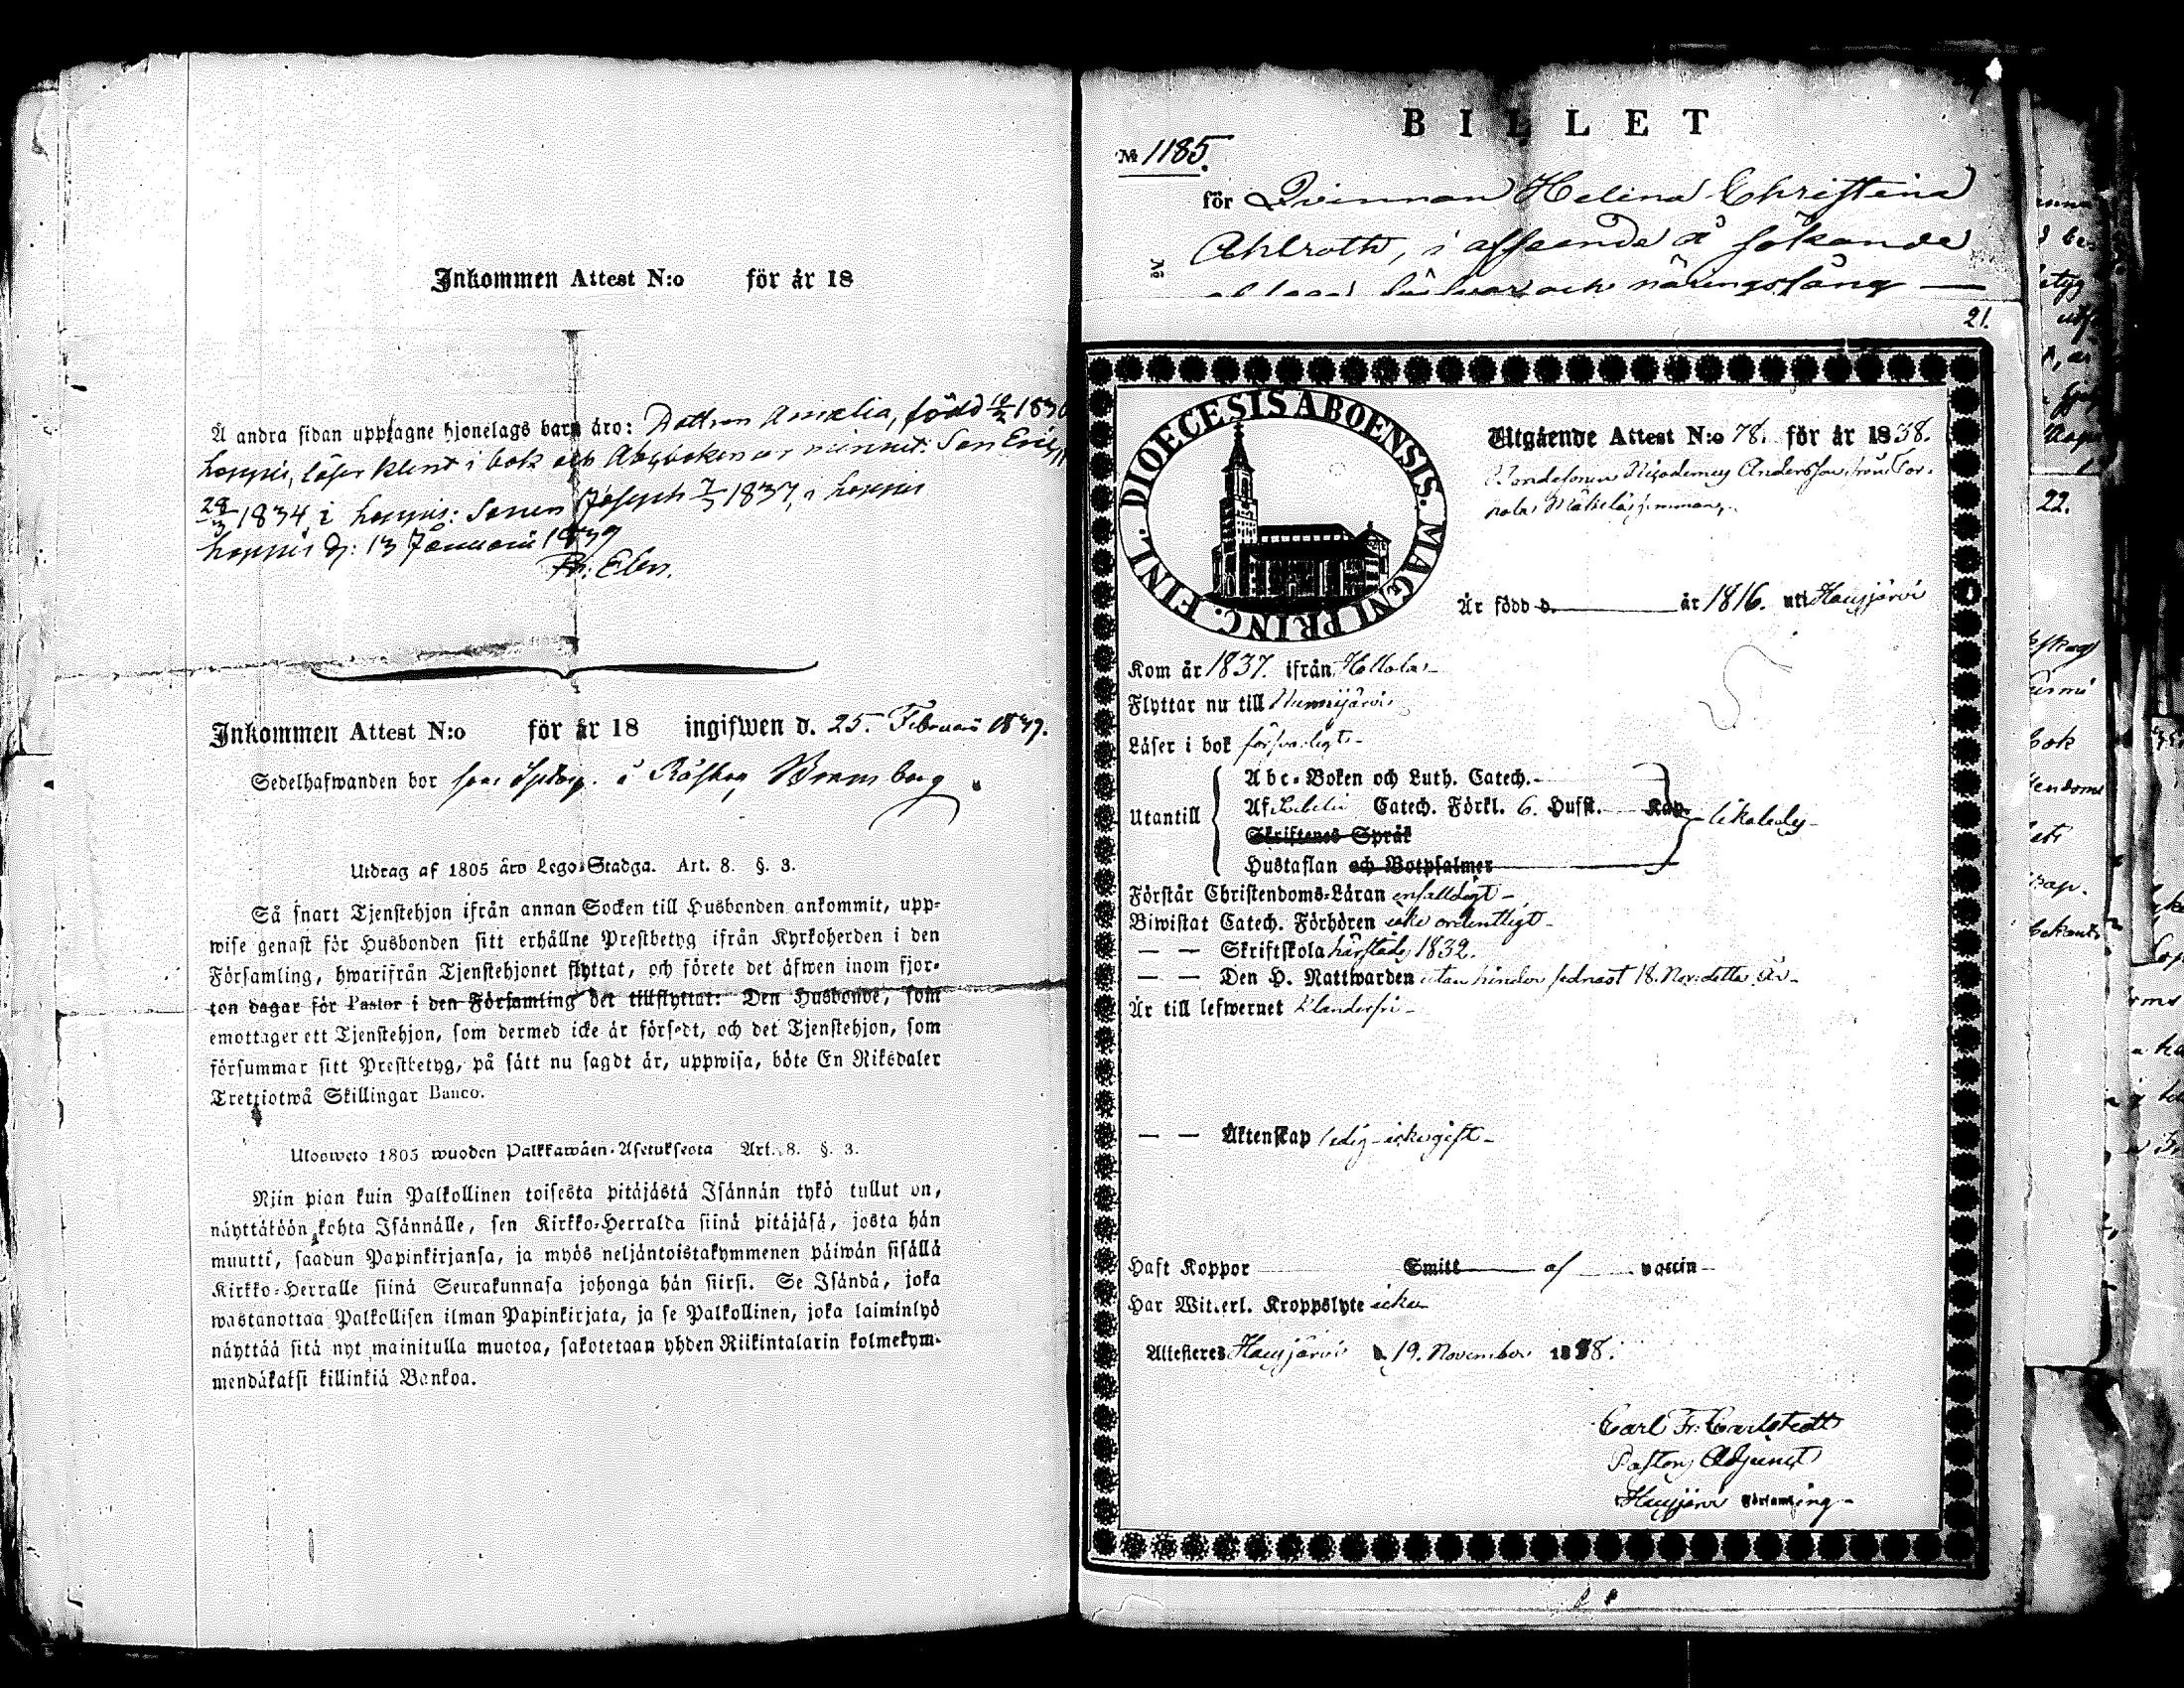 Inkommen Attest N:o för år 18
Å andra sidan upptagne hjonelags barn äro: Dottren Amalia, född 1830
hoppis, läser klent i bok och Abcboken ur minnet: Son Eric,
28/3 1834, i hoppis: Sonen Joseph 7/3 1837, i hoppis
hoppis d: 13 Januarii 1839
Elen.
Inkommen Attest N:o för år 18 ingifwen d. 25 Februari 1839.
Sedelhafwanden bor å
Utdrag af 1805 års Lego-Stadga. Art. 8. §. 3.
Så snart Tjenstehjon ifrån annan Socken till Husbonden ankommit, upp-
wise genast för Husbonden sitt erhållne Prestbetyg ifrån Kyrkoherden i den
Församling, hwarifrån Tjenstehjonet flyttat, och förete det äfwen inom fjor-
ton dagar för Pastor i den Församling det tillflyttat: Den Husbonde, som
emottager ett Tjenstehjon, som dermed icke är försedt, och det Tjenstehjon, som
försummar sitt Prestbetyg, på sätt nu sagdt är, uppwisa, böte En Riksdaler
Trettiotwå Skillingar Banco.
Ulosweto 1805 wuoden Palkkawäen-Asetuksesta Art. 8. §. 3.
Niin pian kuin Palkollinen toisesta pitäjästä Isännän tykö tullut on,
näyttäköön kohta Isännälle, sen Kirkko-Herralda siinä pitäjäsä, josta hän
muutti, saadun Papinkirjansa, ja myös neljäntoistakymmenen päiwän sisällä
Kirkko-Herralle siinä Seurakunnasa johonga hän siirsi. Se Isändä, joka
wastanottaa Palkollisen ilman Papinkirjata, ja se Palkollinen, joka laiminlyö
näyttää sitä nyt mainitulla muotoa, sakotetaan yhden Riikintalarin kolmekym-
mendäkaksi killinkiä Bankoa.
BILLET
No 1185.
för Qvinnan Helena Christina
Ahlroth, i afseende å sökande
och näringsfång
No
21.
DIOECESIS ABOENSIS. MAGNI PRINC. FINL.
Utgående Attest N:o 78. för år 1838.
Bondesonen Nicodemus Andersson från
Är född d. år 1816. uti Hausjärvi
Kom år 1837. ifrån Hollola
Flyttar nu till Nurmijärvi
Läser i bok försvarligt
Utantill
Abc-Boken och Luth. Catech.
Af Catech. Förkl. 6. Hufst. Kap.
Skriftenes Språk
Hustaflan och Botpsalmer
likaledes
Förstår Christendoms-Läran enfalldigt
Biwistat Catech. Förhören icke ordentligt
— — Skriftskola härstädes 1832.
— — Den H. Nattwarden utan hinder sednast 18. Nov. detta år
Är till lefwernet Klanderfri
— — Äktenskap ledig icke gift
Haft Koppor Smitt af vaccin
Har Witterl. Kroppslyte icke
Attesteres Hausjärvi d. 19. November 1838.
Carl Fr. Carlstedt
Pastors Adjunct
Hausjärvi Församling
22.